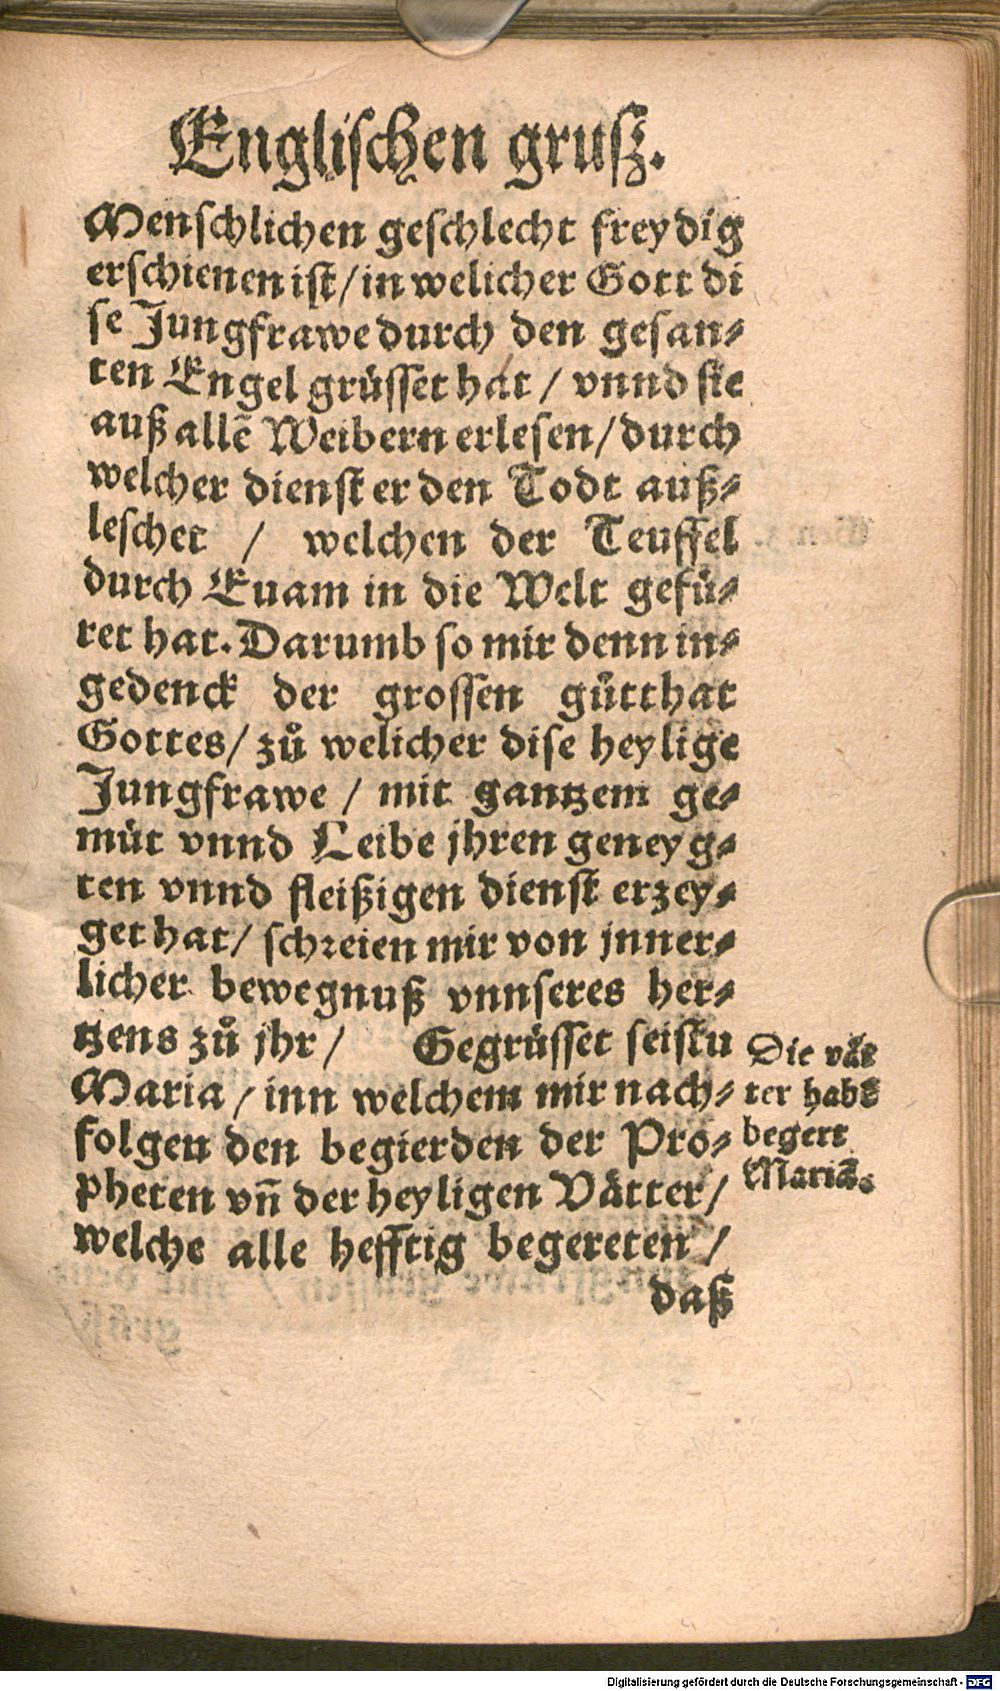 Englischen gruſz.
Menſchlichen geſchlecht freydig
erſchienen iſt/ in welicher Gott di
ſe Jungfrawe durch den geſan⸗
ten Engel grüſſet hat / vnnd ſie
auß allē Weibern erleſen/ durch
welcher dienſt er den Todt auß⸗
leſchet / welchen der Teuffel
durch Euam in die Welt gefü⸗
ret hat. Darumb ſo mir denn in⸗
gedenck der groſſen gůtthat
Gottes/ zů welicher diſe heylige
Jungfrawe / mit gantzem ge⸗
müt vnnd Leibe jhren geneyg⸗
ten vnnd fleißigen dienſt erzey⸗
get hat/ ſchꝛeien mir von jnner⸗
licher bewegnuß vnnſeres her⸗
tzens zů jhr / Gegrüſſet ſeiſtu
Maria / inn welchem mir nach⸗
folgen den begierden der Pro⸗
pheten vñ der heyligen Vätter/
welche alle hefftig begereten /
daß
Die vät
ter habē
begert
Mariā.
Digitalisierung gefördert durch die Deutsche Forschungsgemeinschaft - DFG